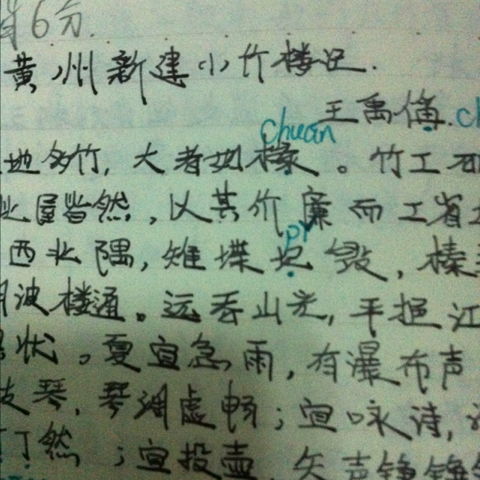 6分.
黄州新建小竹楼记.
王禹偁. ch
chuan
地多竹, 大者如椽。竹工
比屋皆然, 以其价廉而工省
pǐ
西北隅, 雉堞圮毁, 榛
月波楼通。远吞山光, 平挹江
状。夏宜急雨, 有瀑布声
琴, 琴调虚畅; 宜咏诗,
丁丁然; 宜投壶, 矢声铮铮